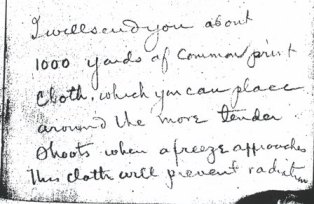 I will send you about
1000 yards of Common print
Cloth, which you can place
around the more tender
Shoots when a freeze approaches
This cloth will prevent radiation